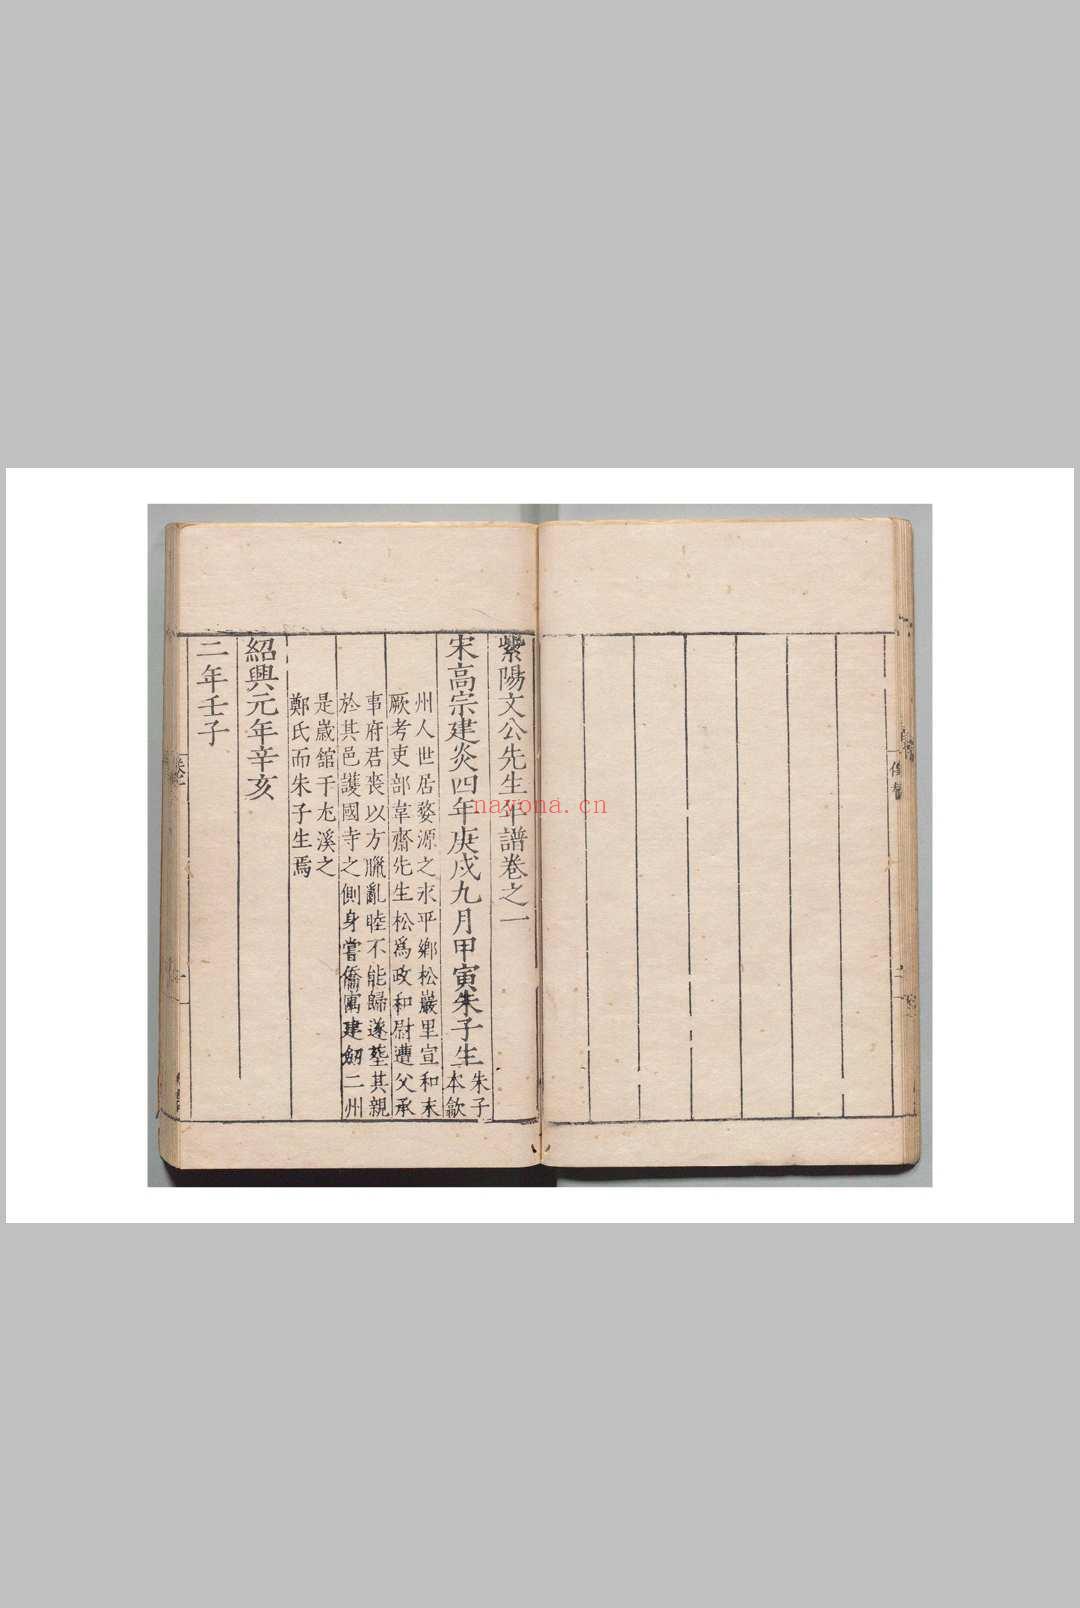 紫陽文公先生年譜卷之一
宋高宗建炎四年庚戌九月甲寅朱子生
朱子
本歙
州人世居婺源之永平鄉松巖里宣和末
厥考吏部韋齋先生松爲政和尉遭父承
事府君喪以方臘亂睦不能歸遂塟其親
於其邑護國寺之側身嘗僑寓建劒二州
是歲舘于尤溪之
鄭氏而朱子生焉
紹興元年辛亥
二年壬子
nayona.cn